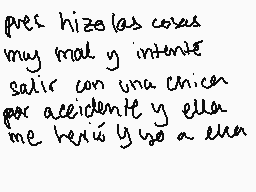 pues hizo las cosas
muy mal y intenté
salir con una chica
por accidente y ella
me herió y yo a ella